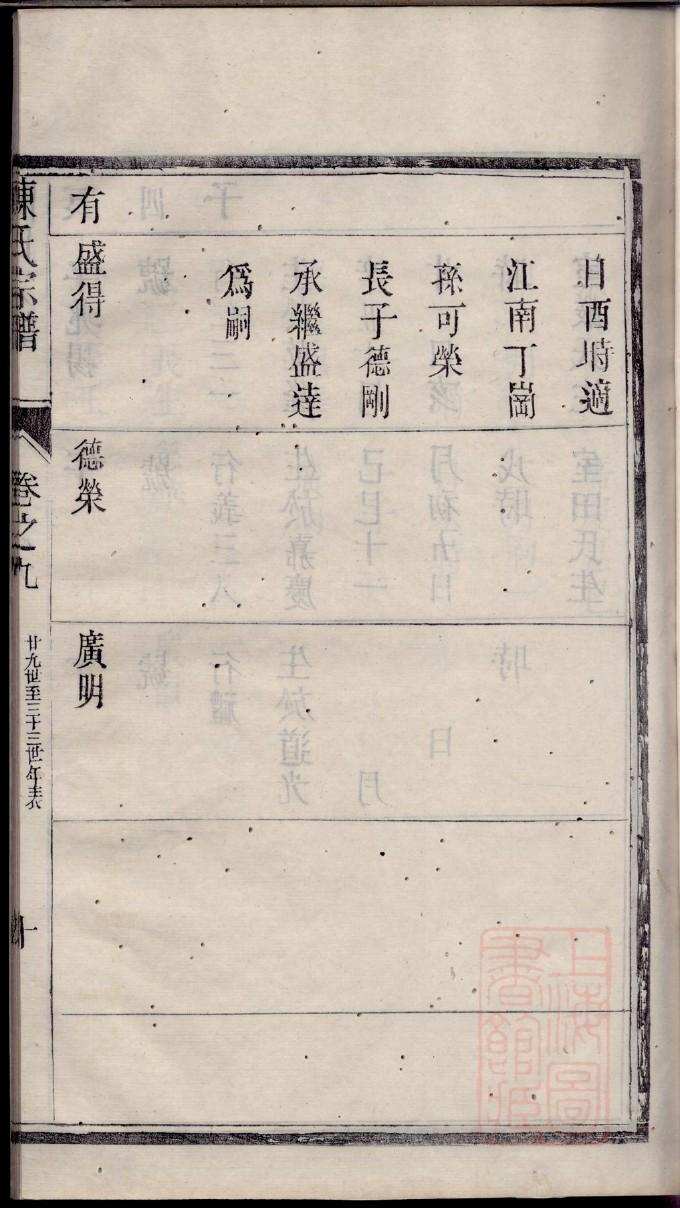 日酉時適
江南丁崗
孫可榮
長子德剛
承繼盛達
爲嗣
有
盛得
德榮
廣明
陳氏宗譜
卷之九
廿九世至三十三世年表
十
上海圖
書館臧